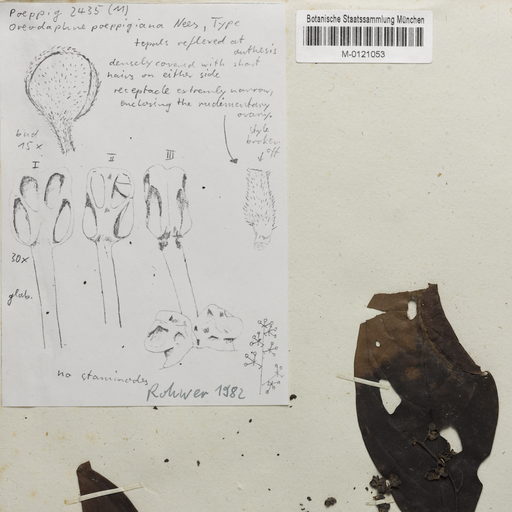 Poeppig 2435 (M)
Oreodaphne poeppigiana Nees, Type
tepals reflexed at
anthesis
densely covered with short
hairs on either side
receptacle extremely narrow,
enclosing the rudimentary
ovary.
style
broken
off
bud
15x
I II III
30x
glab.
no staminodes
Rohwer 1982
Botanische Staatssammlung München
M-0121053